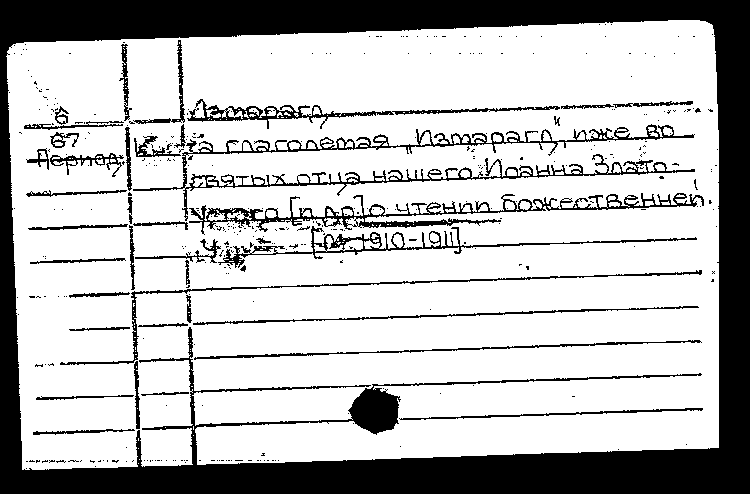 Измарагд.
6
67
Период.
Книга глаголемая „Измарагд", иже во
святых отца нашего Иоанна Злато-
устаго [и др] о чтении божественней.
[М., 1910-1911].